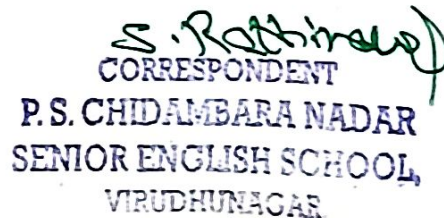 CORRESPONDENT
P. S. CHIDAMBARA NADAR
SENIOR ENGLISH SCHOOL,
VIRUDHUNAGAR